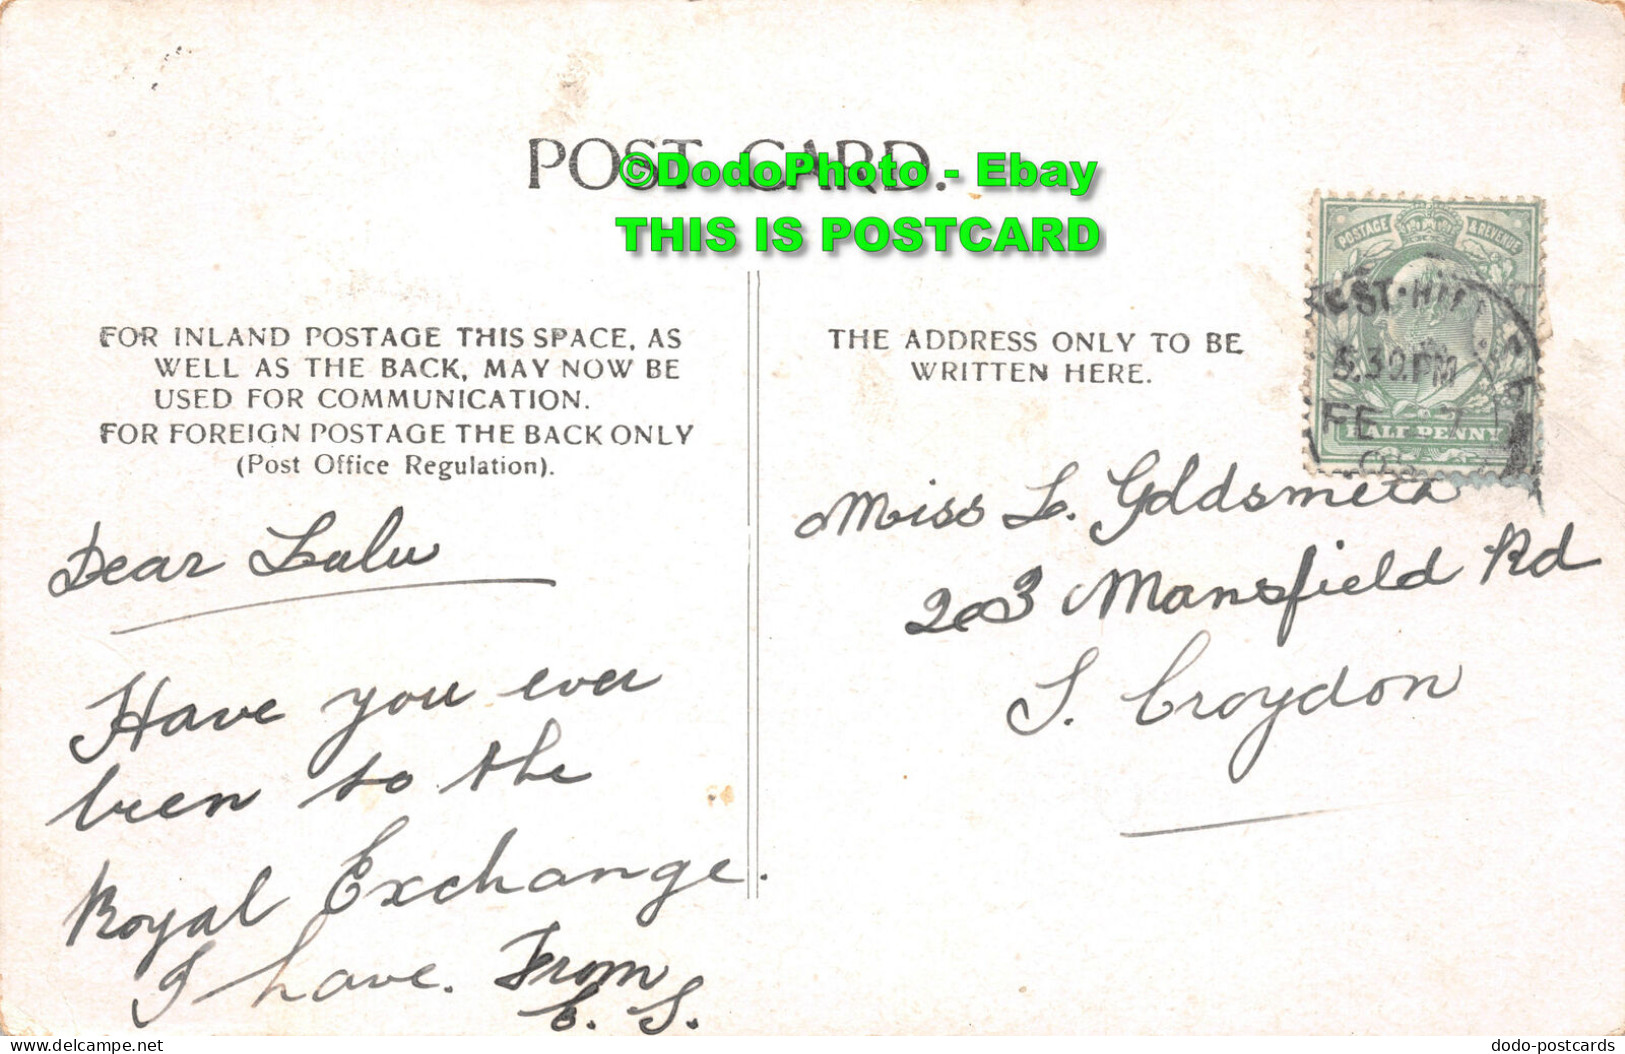 POST CARD.
©DodoPhoto - Ebay
THIS IS POSTCARD
FOR INLAND POSTAGE THIS SPACE, AS
WELL AS THE BACK, MAY NOW BE
USED FOR COMMUNICATION.
FOR FOREIGN POSTAGE THE BACK ONLY
(Post Office Regulation).
Dear Lulu
Have you ever
been to the
Royal Exchange.
I have. From
C. S.
THE ADDRESS ONLY TO BE
WRITTEN HERE.
POSTAGE & REVENUE
5.30.PM
FE 7
HALF PENNY
Miss L.
203 Mansfield Rd
S. Croydon
dodo-postcards